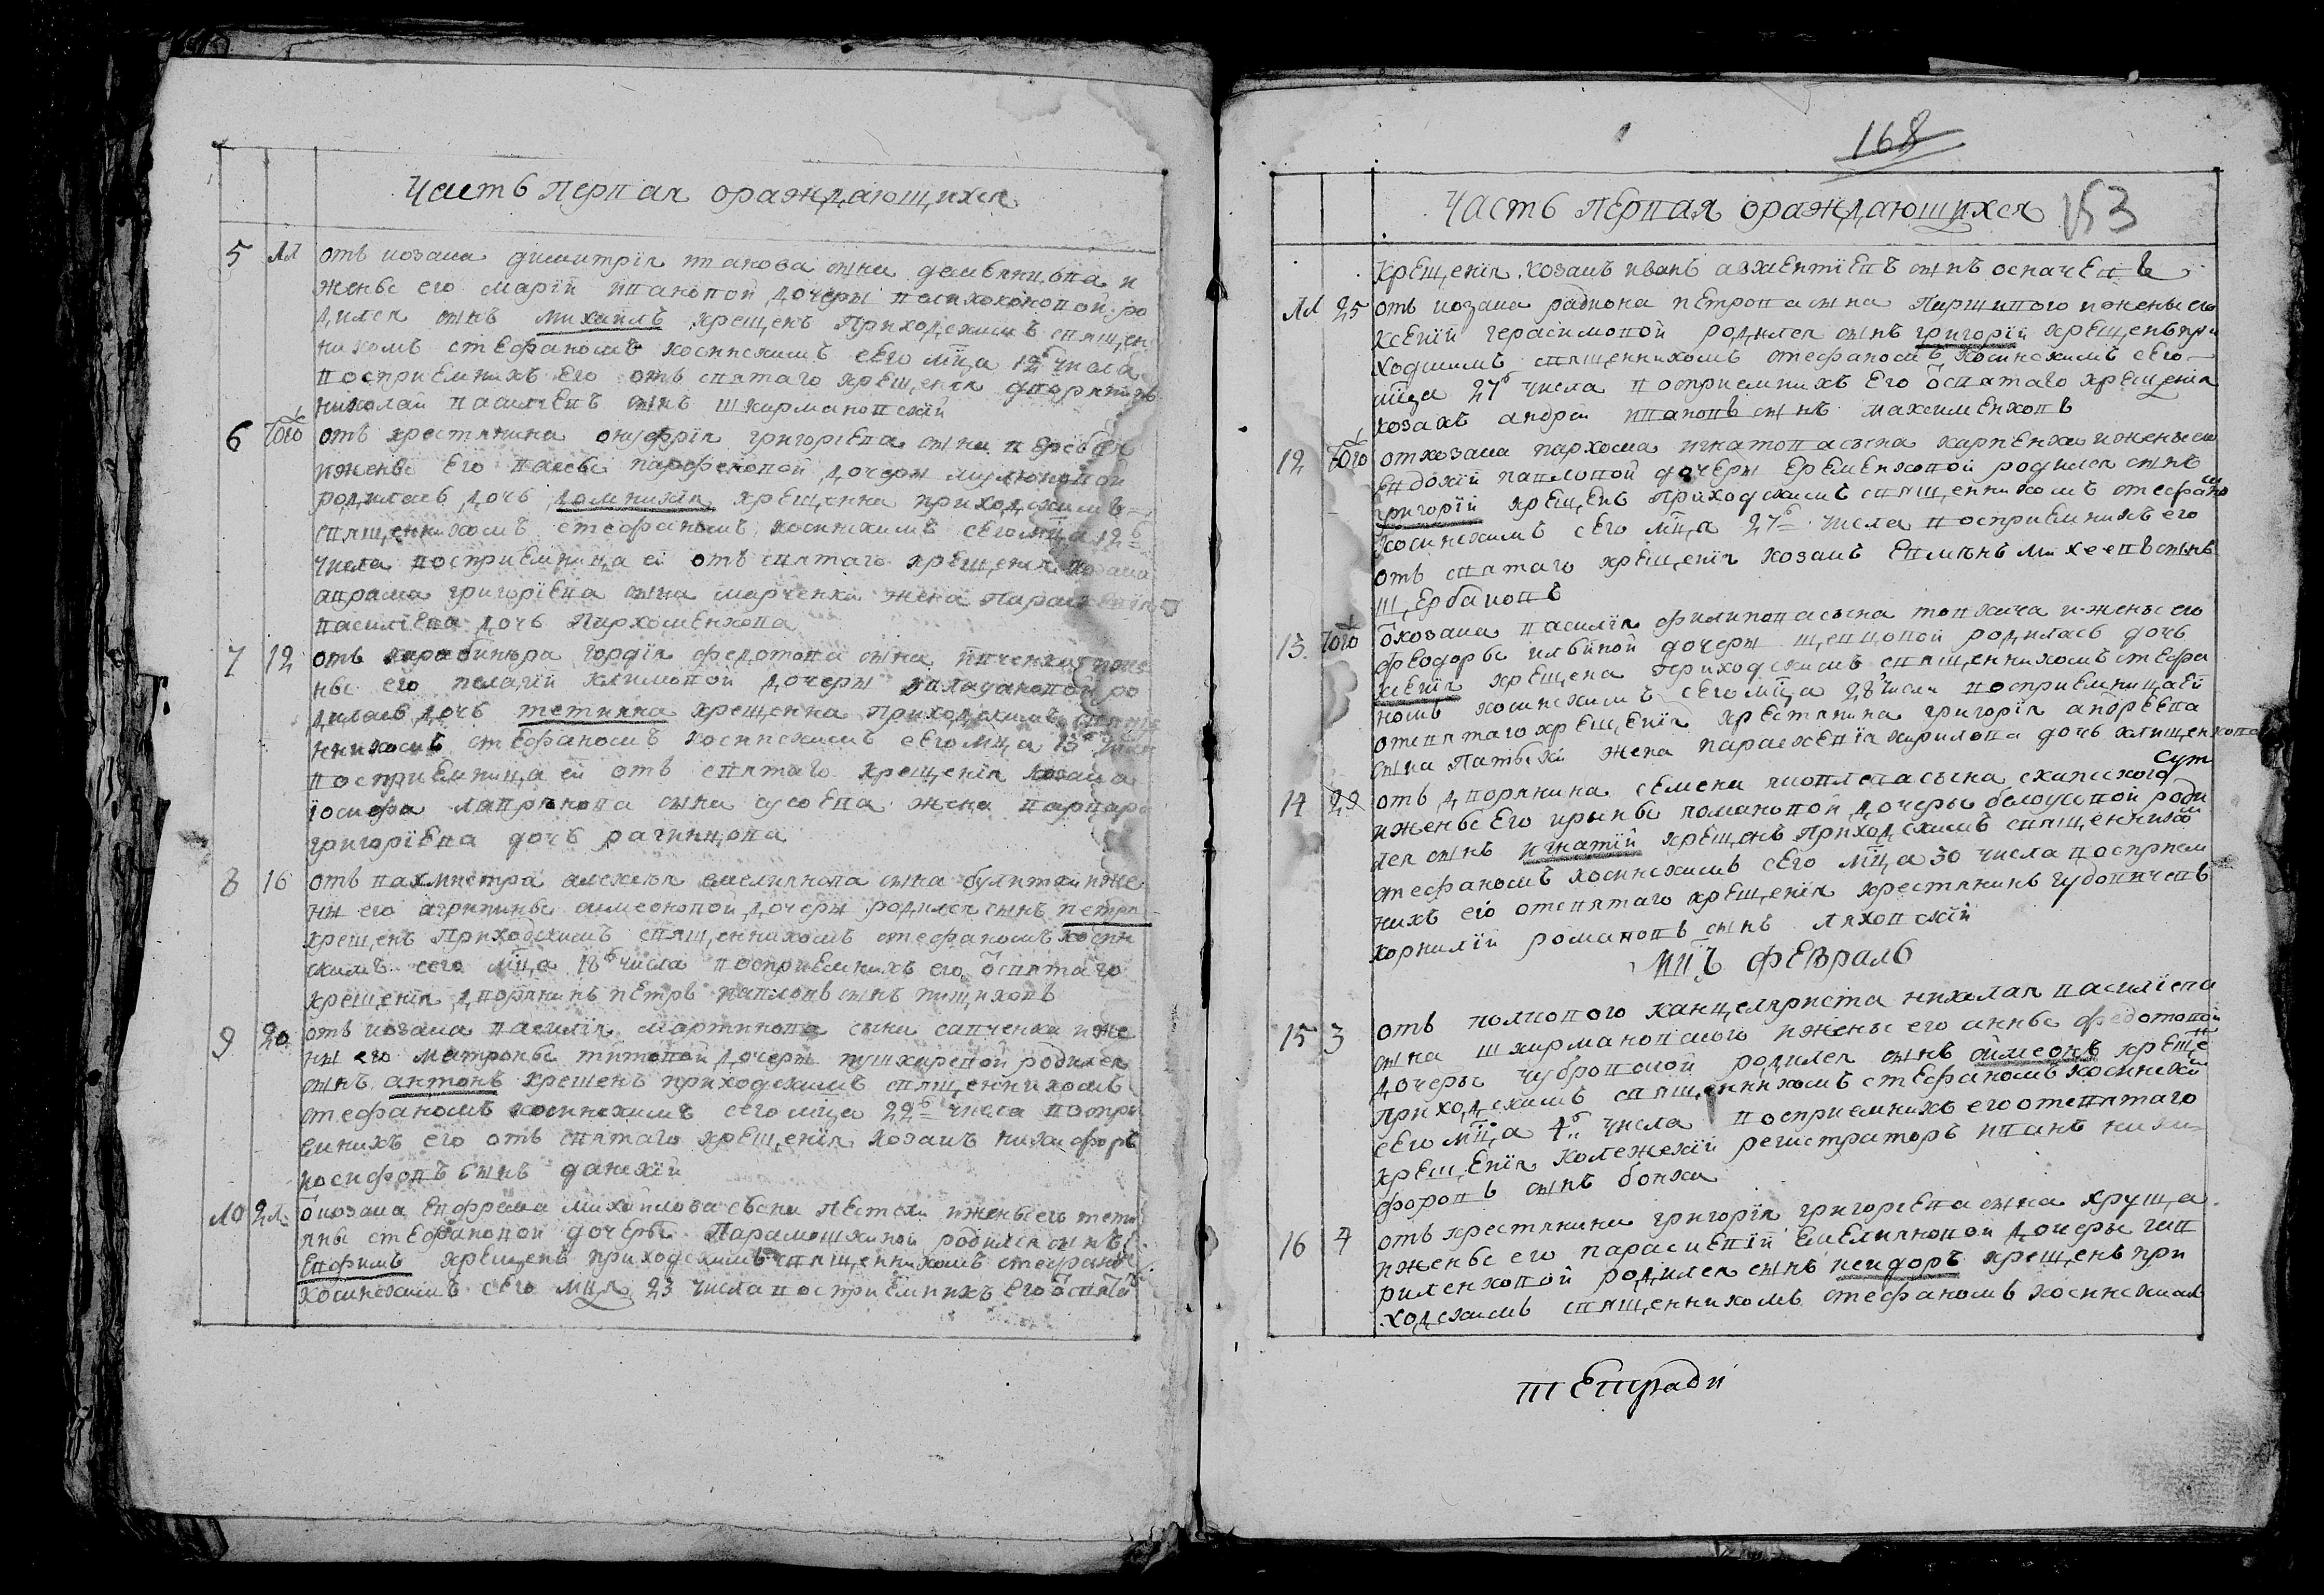 Часть первая ораждающихся
5 11 отъ козака димитрія иванова сына демьянцова и
жены его маріи ивановой дочеры посихоконовой ро
дился сынъ михаилъ крещенъ Приходскимъ священ
никомъ стефаномъ косинскимъ сего мца 12ь числа
восприемникъ его отъ святаго крещенія дворянинъ
николай василіевъ сынъ шкирмановскій
6 того отъ крестянина онуфрія григоріева сына
и жены его парфеновой дочеры
родилась дочь домникія крещенна приходскимъ
священникомъ стефаномъ косинскимъ сего мца 12ь
числа восприемница ей отъ святаго крещенія козака
аврама григоріева сына марченка жена
василіева дочь Пархоменкова
7 12 отъ карабинѣра гордія федотова сына ивченка и же
ны его пелагіи климовой дочеры ро
дилась дочь тетияна крещенна приходскимъ свяще
нникомъ стефаномъ косинскимъ сего мца 13ь числа
восприемница ей отъ святаго крещенія козака
іосифа лаврѣнова сына сусоева жена варвара
григоріева дочь рагинцова
8 16 отъ вахмистра алексѣя емелиянова сына булитки и же
ны его агрипины симеоновой дочеры родился сынъ петро
крещенъ Приходскимъ священникомъ стефаномъ косин
скимъ сего мца 18ь числа восприемникъ его ѿ святаго
крещенія дворянинъ петръ павловъ сынъ пищиковъ
9 20 отъ козака василія мартинова сына савченка и же
ны его матроны титовой дочеры пушкаревой родился
сынъ антонъ крещенъ приходскимъ священникомъ
стефаномъ косинскимъ сего мца 22ь числа воспри
емникъ его отъ святаго крещенія козакъ никифоръ
иосифовъ сынъ данскій
10 21 ѿ козака ефрема михаилова сына пестехи и жены его тети
яны стефановой дочеры Парамошкиной родился сынъ
ефимъ крещенъ приходскимъ священникомъ стефано
косинскимъ сего мца 23 числа восприемникъ его ѿ свята
168
Часть первая ораждающихся 153
крещенія козакъ иванъ авксентіевъ сынъ осначевъ
11 25 отъ козака радиона петрова сына Паршивого и жены его
ксеніи герасимовой родился сынъ григорій крещенъ при
ходскимъ священникомъ стефаномъ косинскимъ сего
мца 27ь числа восприемникъ его ѿ святаго крещенія
козакъ андрей ивановъ сынъ максименковъ
12 того от козака пархома игнатова сына карпенка и жены его
евдокіи павловой дочеры еременковой родился сынъ
григорій крещенъ приходскимъ священникомъ стефаном
косинскимъ сего мца 27ь числа восприемникъ его
отъ святаго крещенія козакъ михеевъ сынъ
щербаковъ
13 того ѿ козака василія филипова сына товкача и жены его
феодоры ильиной дочеры щепцовой родилась дочь
ксенія крещена приходскимъ священникомъ стефа
номъ косинскимъ сего мца 28 числа восприемница ей
от святаго крещенія крестянина григорія андреева
сына Патьохи жена параскевія кирилова дочь клищенкова
14 29 отъ дворянина семена яковлева сына скапского Сут
и жены его ирыны романовой дочеры белоусовой роди
лся сынъ игнатій крещенъ приходскимъ священникомъ
стефаномъ косинскимъ сего мца 30 числа восприем
никъ его от святаго крещенія крестянинъ чудовичевъ
корнилій романовъ сынъ ляховскій
мцъ февраль
15 3 отъ полкового канцеляриста николая василіева
сына шкирмановского и жены его анны федотовой
дочеры чубровской родился сынъ симеонъ креще
приходскимъ священникомъ стефаномъ косинский
сего мца 4ь числа восприемникъ его от святаго
крещенія колежскій регистраторъ иванъ ники
форовъ сынъ бонка
16 4 отъ крестянина григорія григоріева сына хруща
и жены его параскевіи емелияновой дочеры гав
риленковой родился сынъ исидоръ крещенъ при
ходскимъ священникомъ стефаномъ косинскимъ
тетради